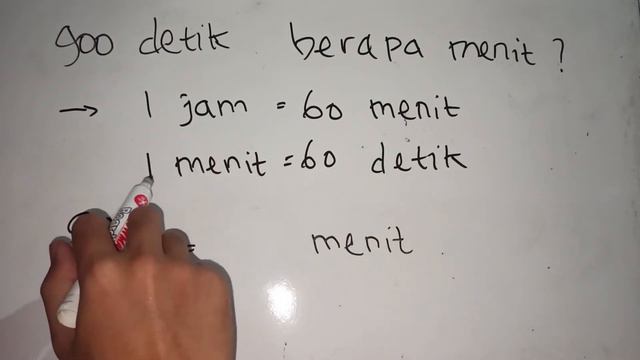 900 detik berapa menit ?
→ 1 jam = 60 menit
1 menit = 60 detik
= menit